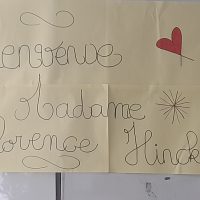 ienvenue
Madame
lorence Hinck